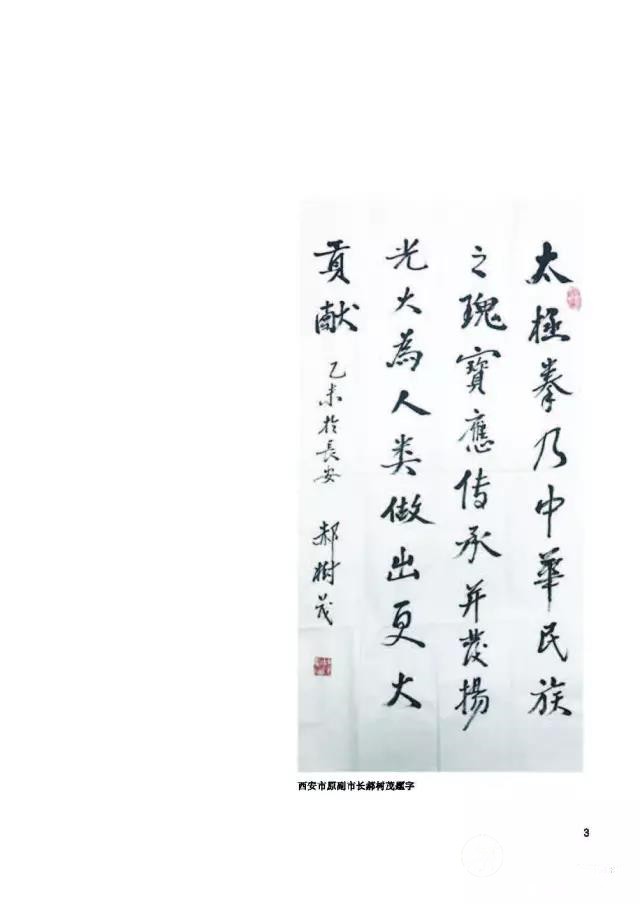 太極拳乃中華民族
之瑰寶應传承并發揚
光大為人类做出更大
貢献
乙未於長安
郝樹茂
西安市原副市长郝树茂题字
3